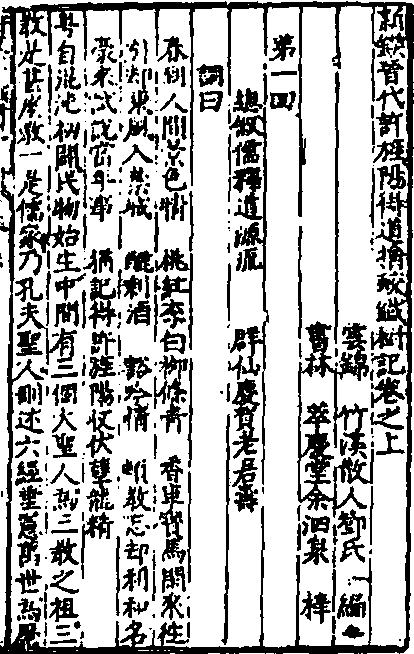 新鐫晉代許旌陽得道擒蛟鐵樹記卷之上
雲錦 竹溪散人鄧氏 編
書林 萃慶堂余泗泉 梓
第一回
總敘儒釋道源流 群仙慶賀老君壽
詞曰
春到人間景色 桃紅李白柳條青 香車寶馬閑來
東風入禁城 剩酒 豁吟情 頓教忘却利和名
豪來試說當年事 猶記得許旌陽仗伏孽龍精
粵自混沌初闢民物始生中間有三個大聖人為三教之祖三
教是甚麼教一是儒家乃孔夫聖人刪述六經垂憲萬世為歷